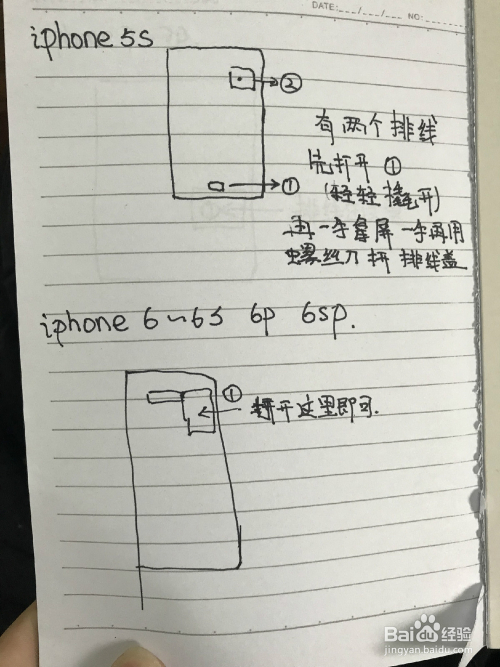 DATE: ___/___/___ NO: ______
iphone 5s
②
有两个排线
先打开 ①
①
(轻轻撬开)
再一手拿屏 一手再用
螺丝刀 拆 排线盖
iphone 6~6S 6p 6sp.
①
打开这里即可.
Baidu经验
jingyan.baidu.com